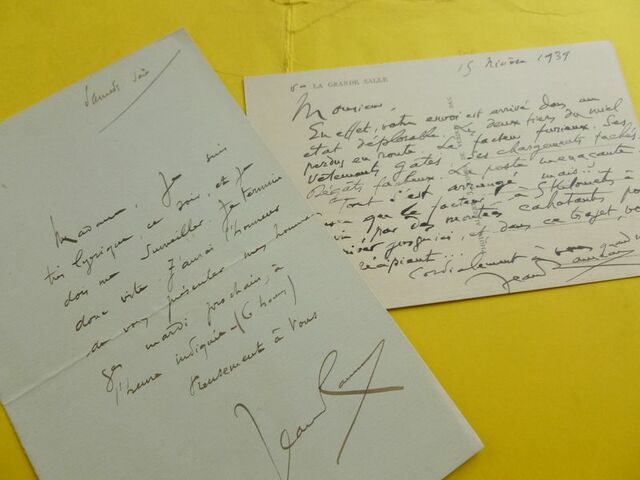 Samedi soir
Madame, Je suis
très lyrique, ce soir, et Je
dois me surveiller. Je termine
donc vite. J'aurai l'honneur
de vous présenter mes homma-
ges mardi prochain, à
l'heure indiquée - (6 heures)
à Vous
Jean
LA GRANDE SALLE
15 1939
Monsieur,
En effet, votre envoi est arrivé dans un
état déplorable. Les deux tiers du miel
perdus en route. Le facteur furieux. Ses
vêtements gâtés. Ses chargements fachés.
Dégâts facteur. La poste menaçante.
Tout s'est arrangé mais...
que le facteur
par des cahotants
jusqu'ici, et dans ce trajet,
récipient...
Cordialement à vous
Jean